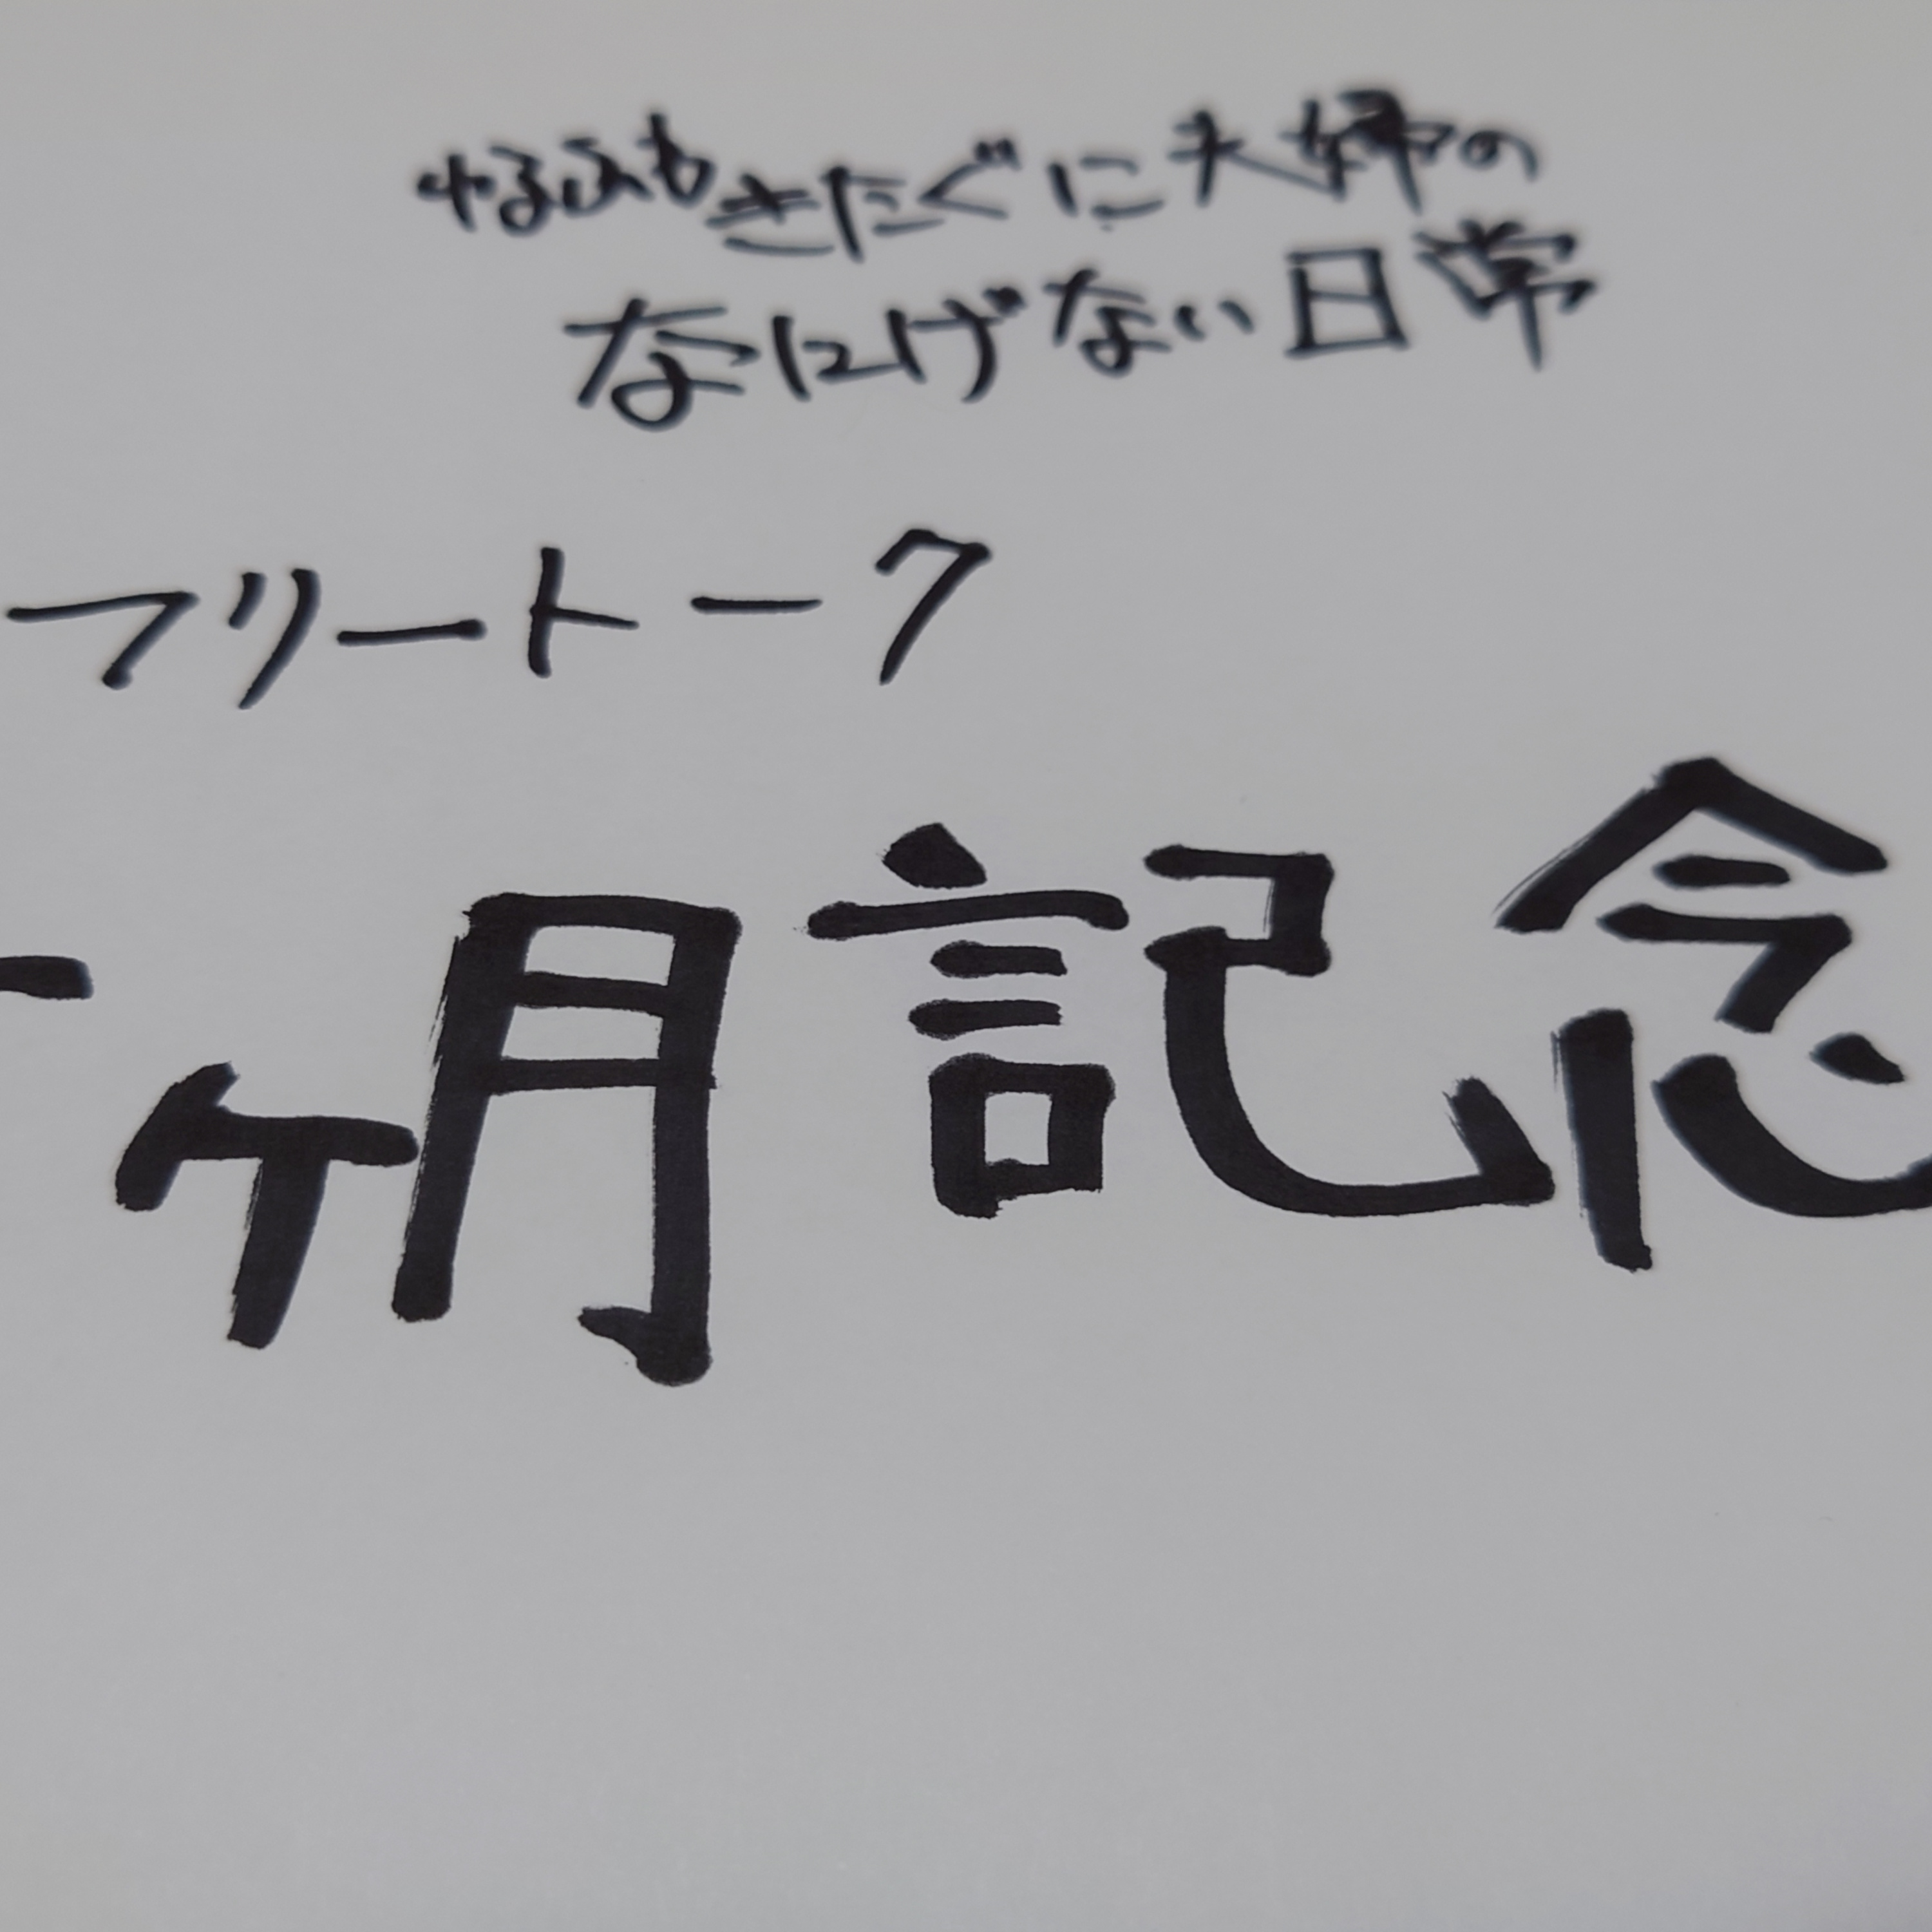 ゆるふわきたぐに夫婦の
なにげない日常
フリートーク
ヶ月記念